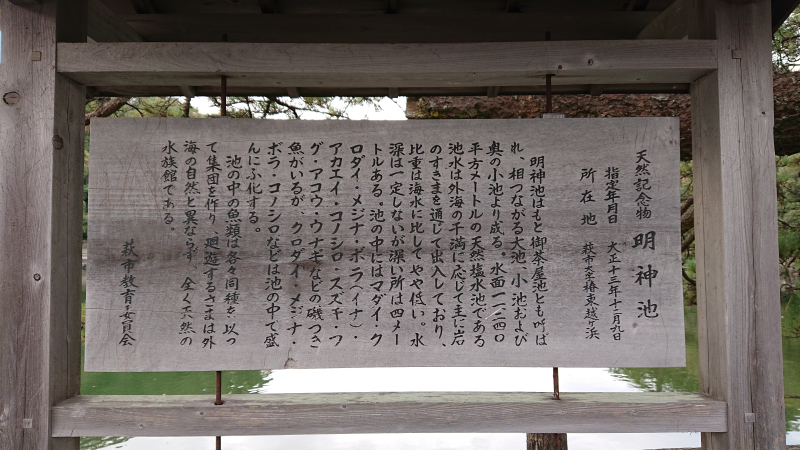 天然記念物 明神池
指定年月日 大正十三年十二月九日
所在地 萩市大字椿東越ヶ浜
明神池はもと御茶屋池とも呼ば
れ、相つながる大池、小池および
奥の小池より成る。水面一一二四〇
平方メートルの天然塩水池である
池水は外海の干満に応じて主に岩
のすきまを通じて出入しており、
比重は海水に比してやや低い。水
深は一定しないが深い所は四メー
トルある。池の中にはマダイ・ク
ロダイ・メジナ・ボラ(イナ)・
アカエイ・コノシロ・スズキ・フ
グ・アコウ・ウナギなどの磯つき
魚がいるが、クロダイ・メジナ・
ボラ・コノシロなどは池の中で盛
んにふ化する。
池の中の魚類は各々同種を以っ
て集団を作り、廻遊するさまは外
海の自然と異ならず 全く天然の
水族館である。
萩市教育委員会